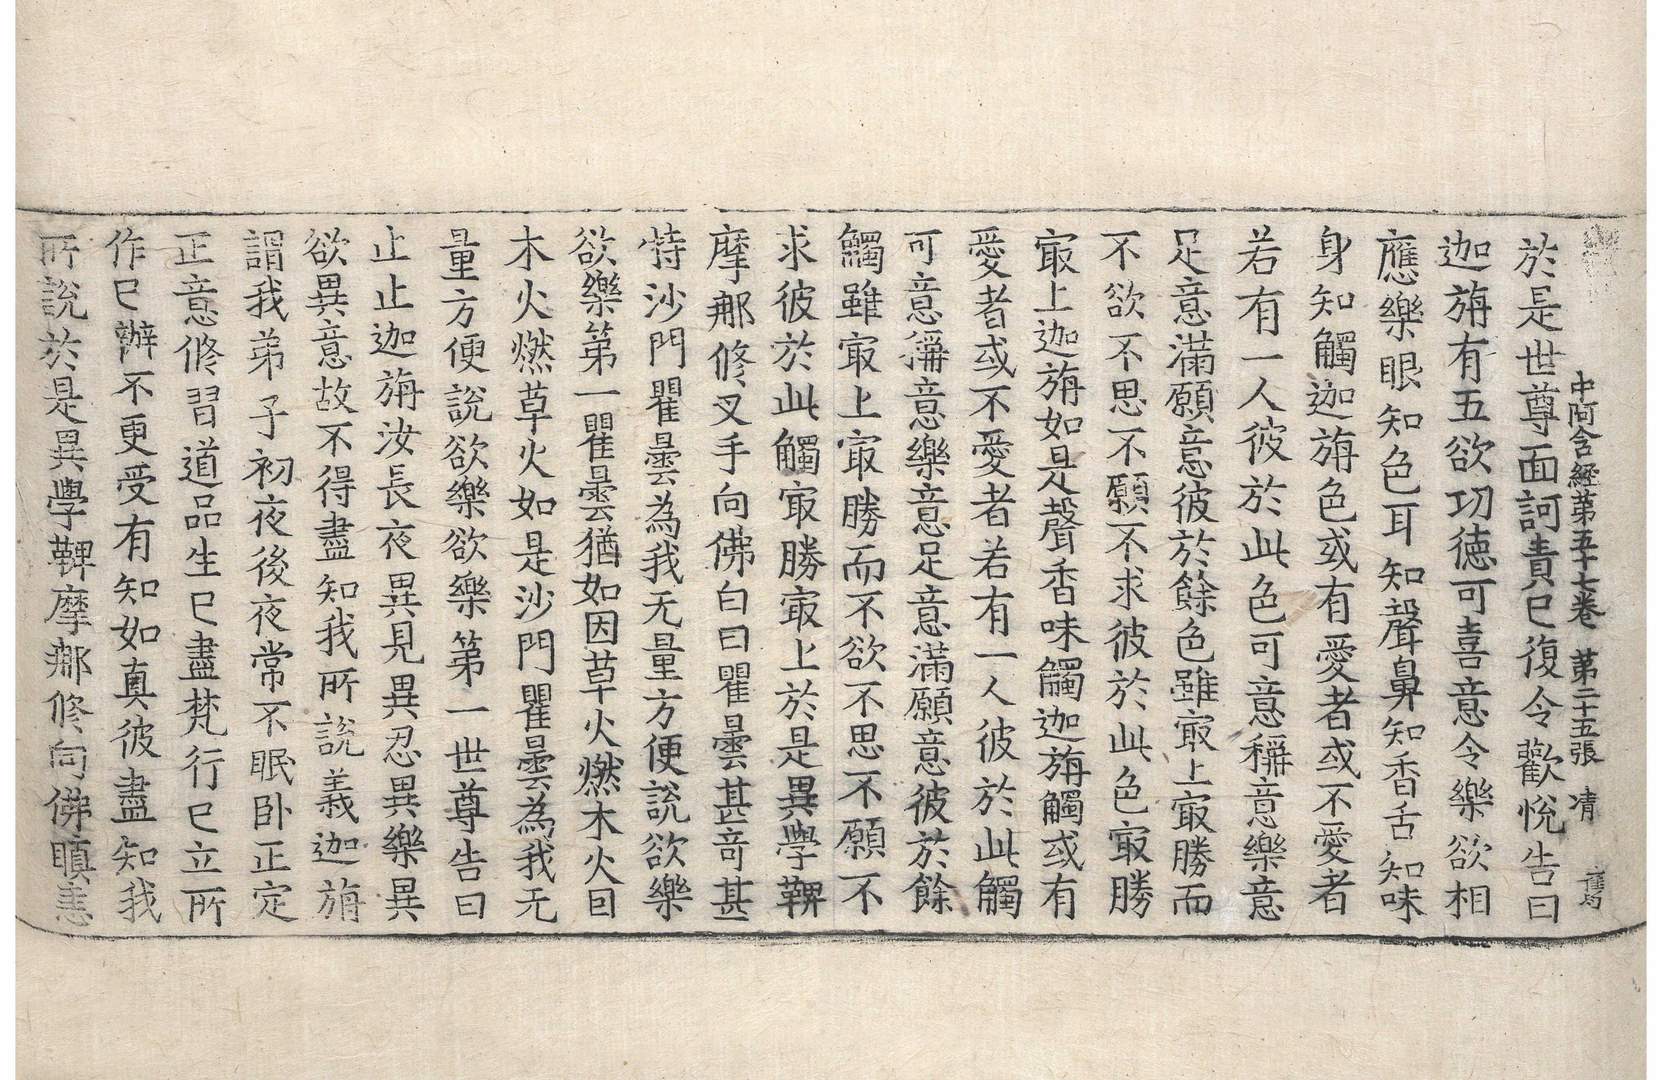 中阿含經第五十七卷　第二十五張　凊
於是世尊面訶責已復令歡悅告曰
迦旃有五欲功徳可喜意令樂欲相
應樂眼知色耳知聲鼻知香舌知味
身知觸迦旃色或有愛者或不愛者
若有一人彼於此色可意稱意樂意
足意滿願意彼於餘色雖㝡上㝡勝而
不欲不思不願不求彼於此色㝡勝
㝡上迦旃如是聲香味觸迦旃觸或有
愛者或不愛者若有一人彼於此觸
可意稱意樂意足意滿願意彼於餘
觸雖㝡上㝡勝而不欲不思不願不
求彼於此觸㝡勝㝡上於是異學鞞
摩那修叉手向佛白曰瞿曇甚奇甚
特沙門瞿曇為我无量方便說欲樂
欲樂第一瞿曇猶如因草火燃木火因
木火燃草火如是沙門瞿曇為我无
量方便說欲樂欲樂第一世尊告曰
止止迦旃汝長夜異見異忍異樂異
欲異意故不得盡知我所說義迦旃
謂我弟子初夜後夜常不眠卧正定
正意修習道品生已盡梵行已立所
作已辦不更受有知如真彼盡知我
所說於是異學鞞摩那修向佛瞋恚